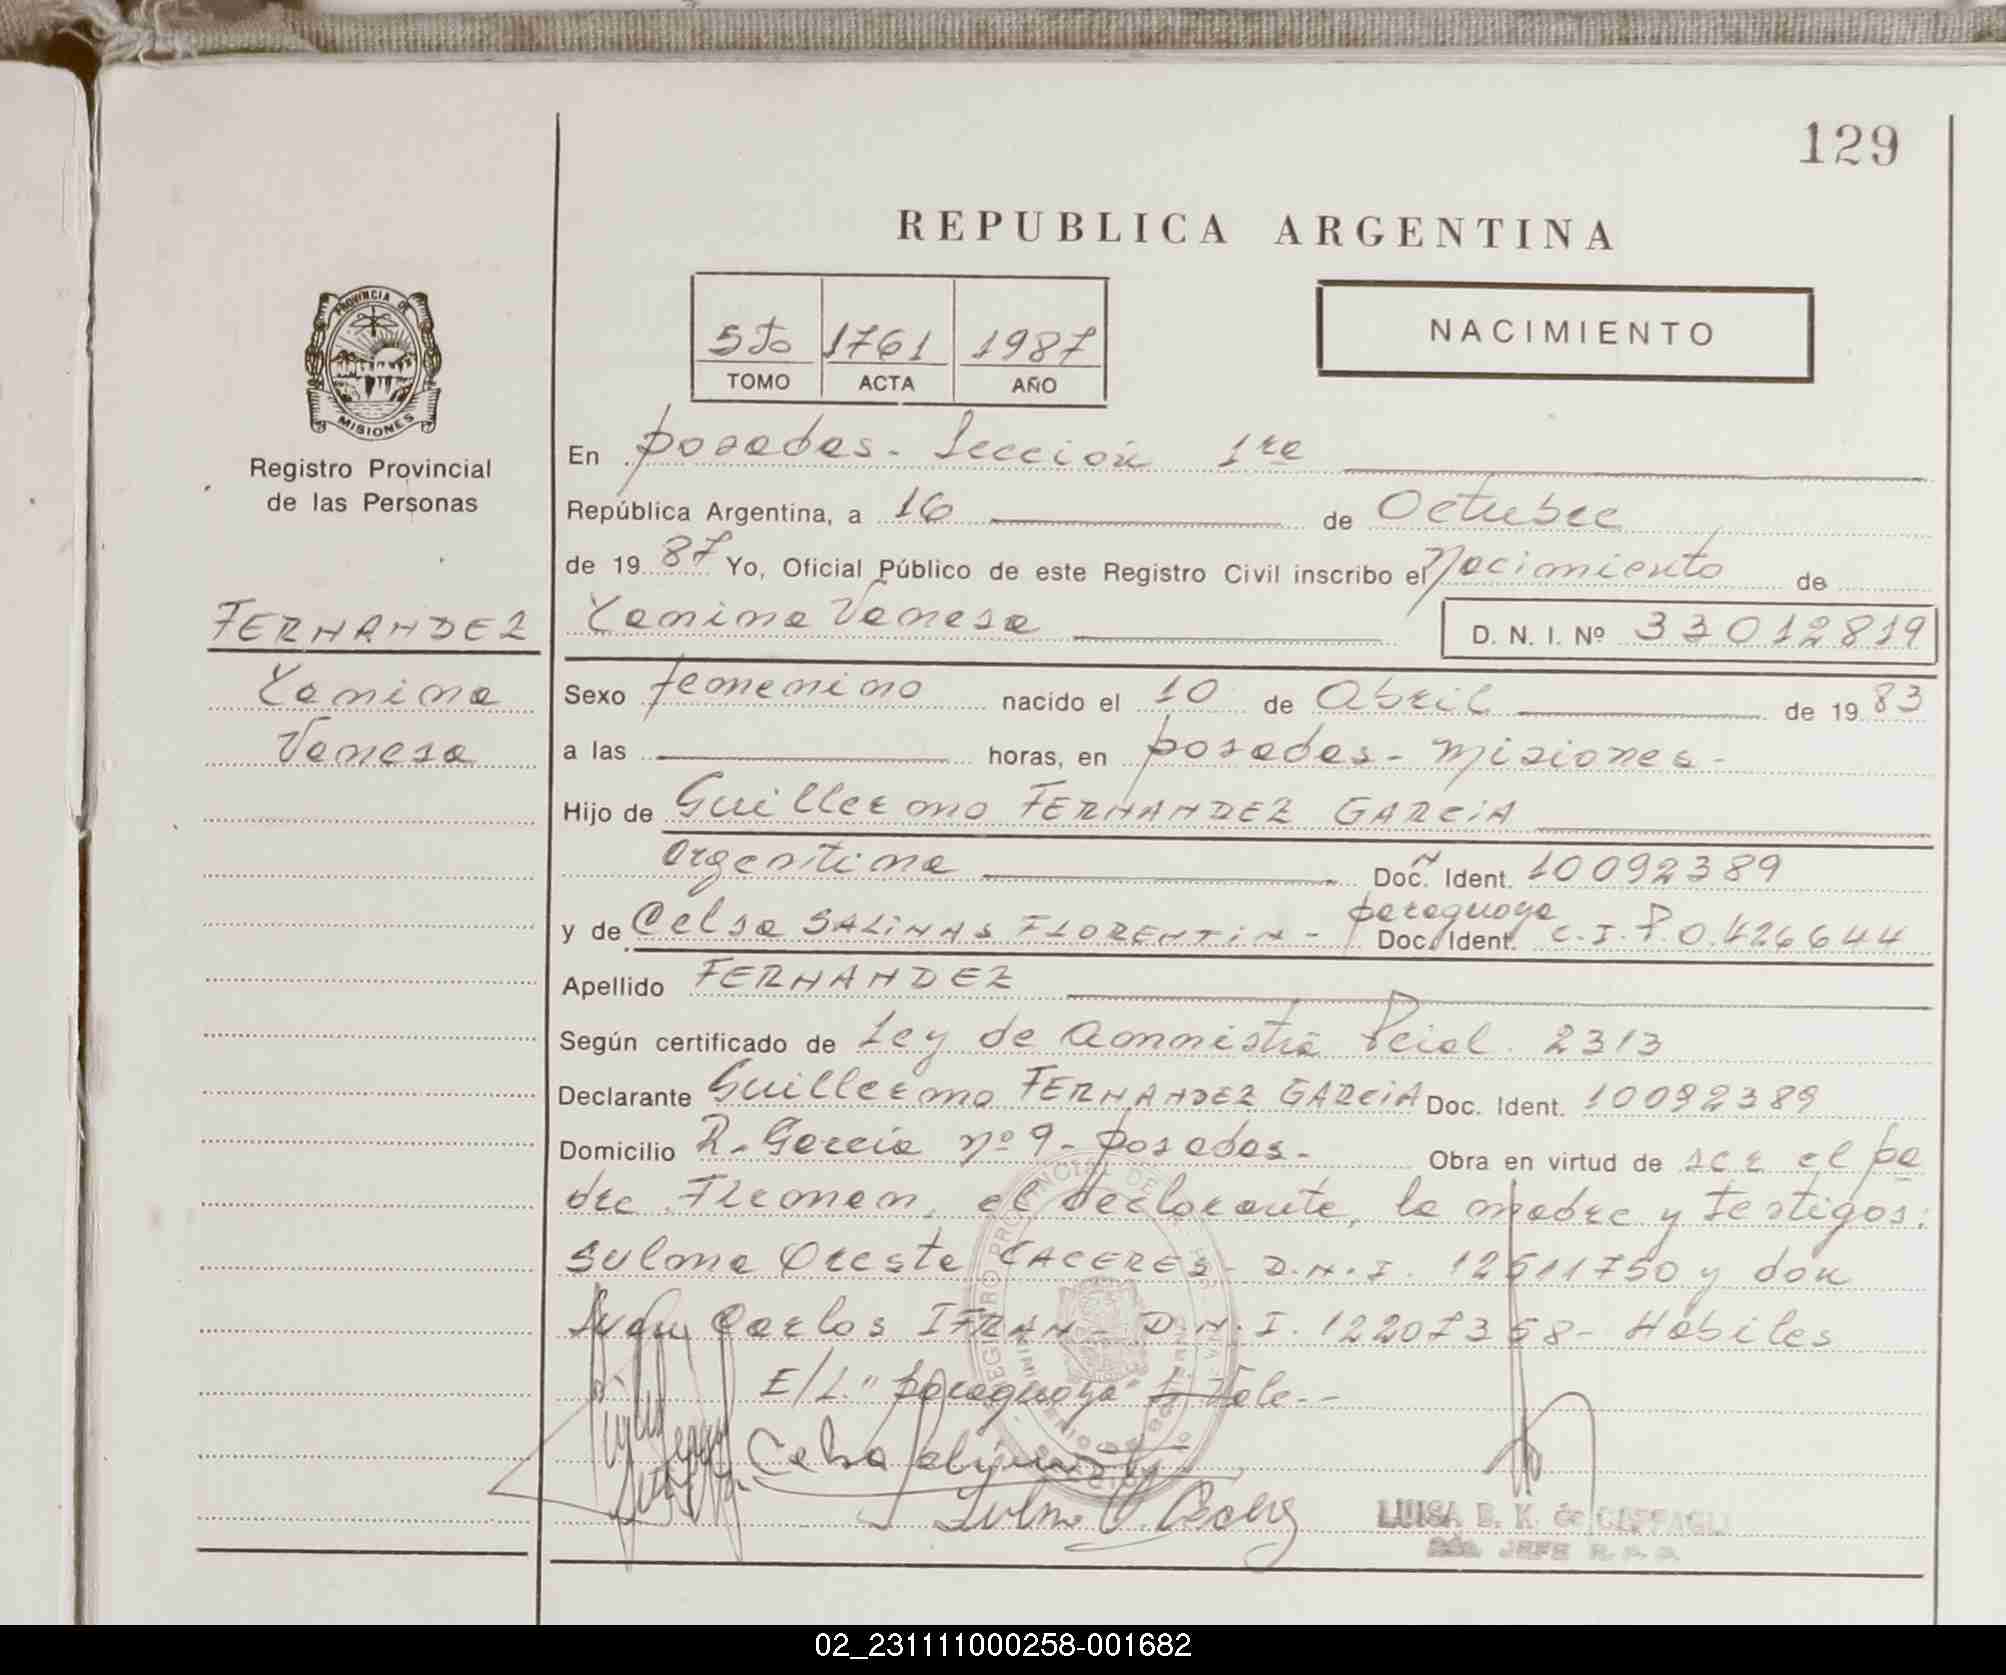 129
REPUBLICA ARGENTINA
PROVINCIA DE
MISIONES
Registro Provincial
de las Personas
5to 1761 1987
TOMO ACTA AÑO
NACIMIENTO
En Posadas - Sección 1ra
República Argentina, a 16 de Octubre
de 1987 Yo, Oficial Público de este Registro Civil inscribo el Nacimiento de
FERNANDEZ
Yanina
Vanesa
Yanina Vanesa D. N. I. Nº 33012819
Sexo femenino nacido el 10 de Abril de 1983
a las horas, en Posadas - Misiones -
Hijo de Guillermo FERNANDEZ GARCIA
argentina Doc. Ident. 10092389
paraguaya
y de Celsa SALINAS FLORENTIN - Doc. Ident. C.I.P.O.426644
Apellido FERNANDEZ
Según certificado de Ley de Amnistia Pcial. 2313
Declarante Guillermo FERNANDEZ GARCIA Doc. Ident. 10092389
Domicilio R. Garcia nº 9 - Posadas - Obra en virtud de ser el pa
dre. Firman, el declarante, la madre y testigos:
Sulma Oreste CACERES - D.N.I. 12511750 y don
Juan Carlos IFRAN - D.N.I. 12207368 - Hábiles
E/L. "paraguaya" Vale.--
LUISA B. K. de
JEFE R. P. P.
02_231111000258-001682